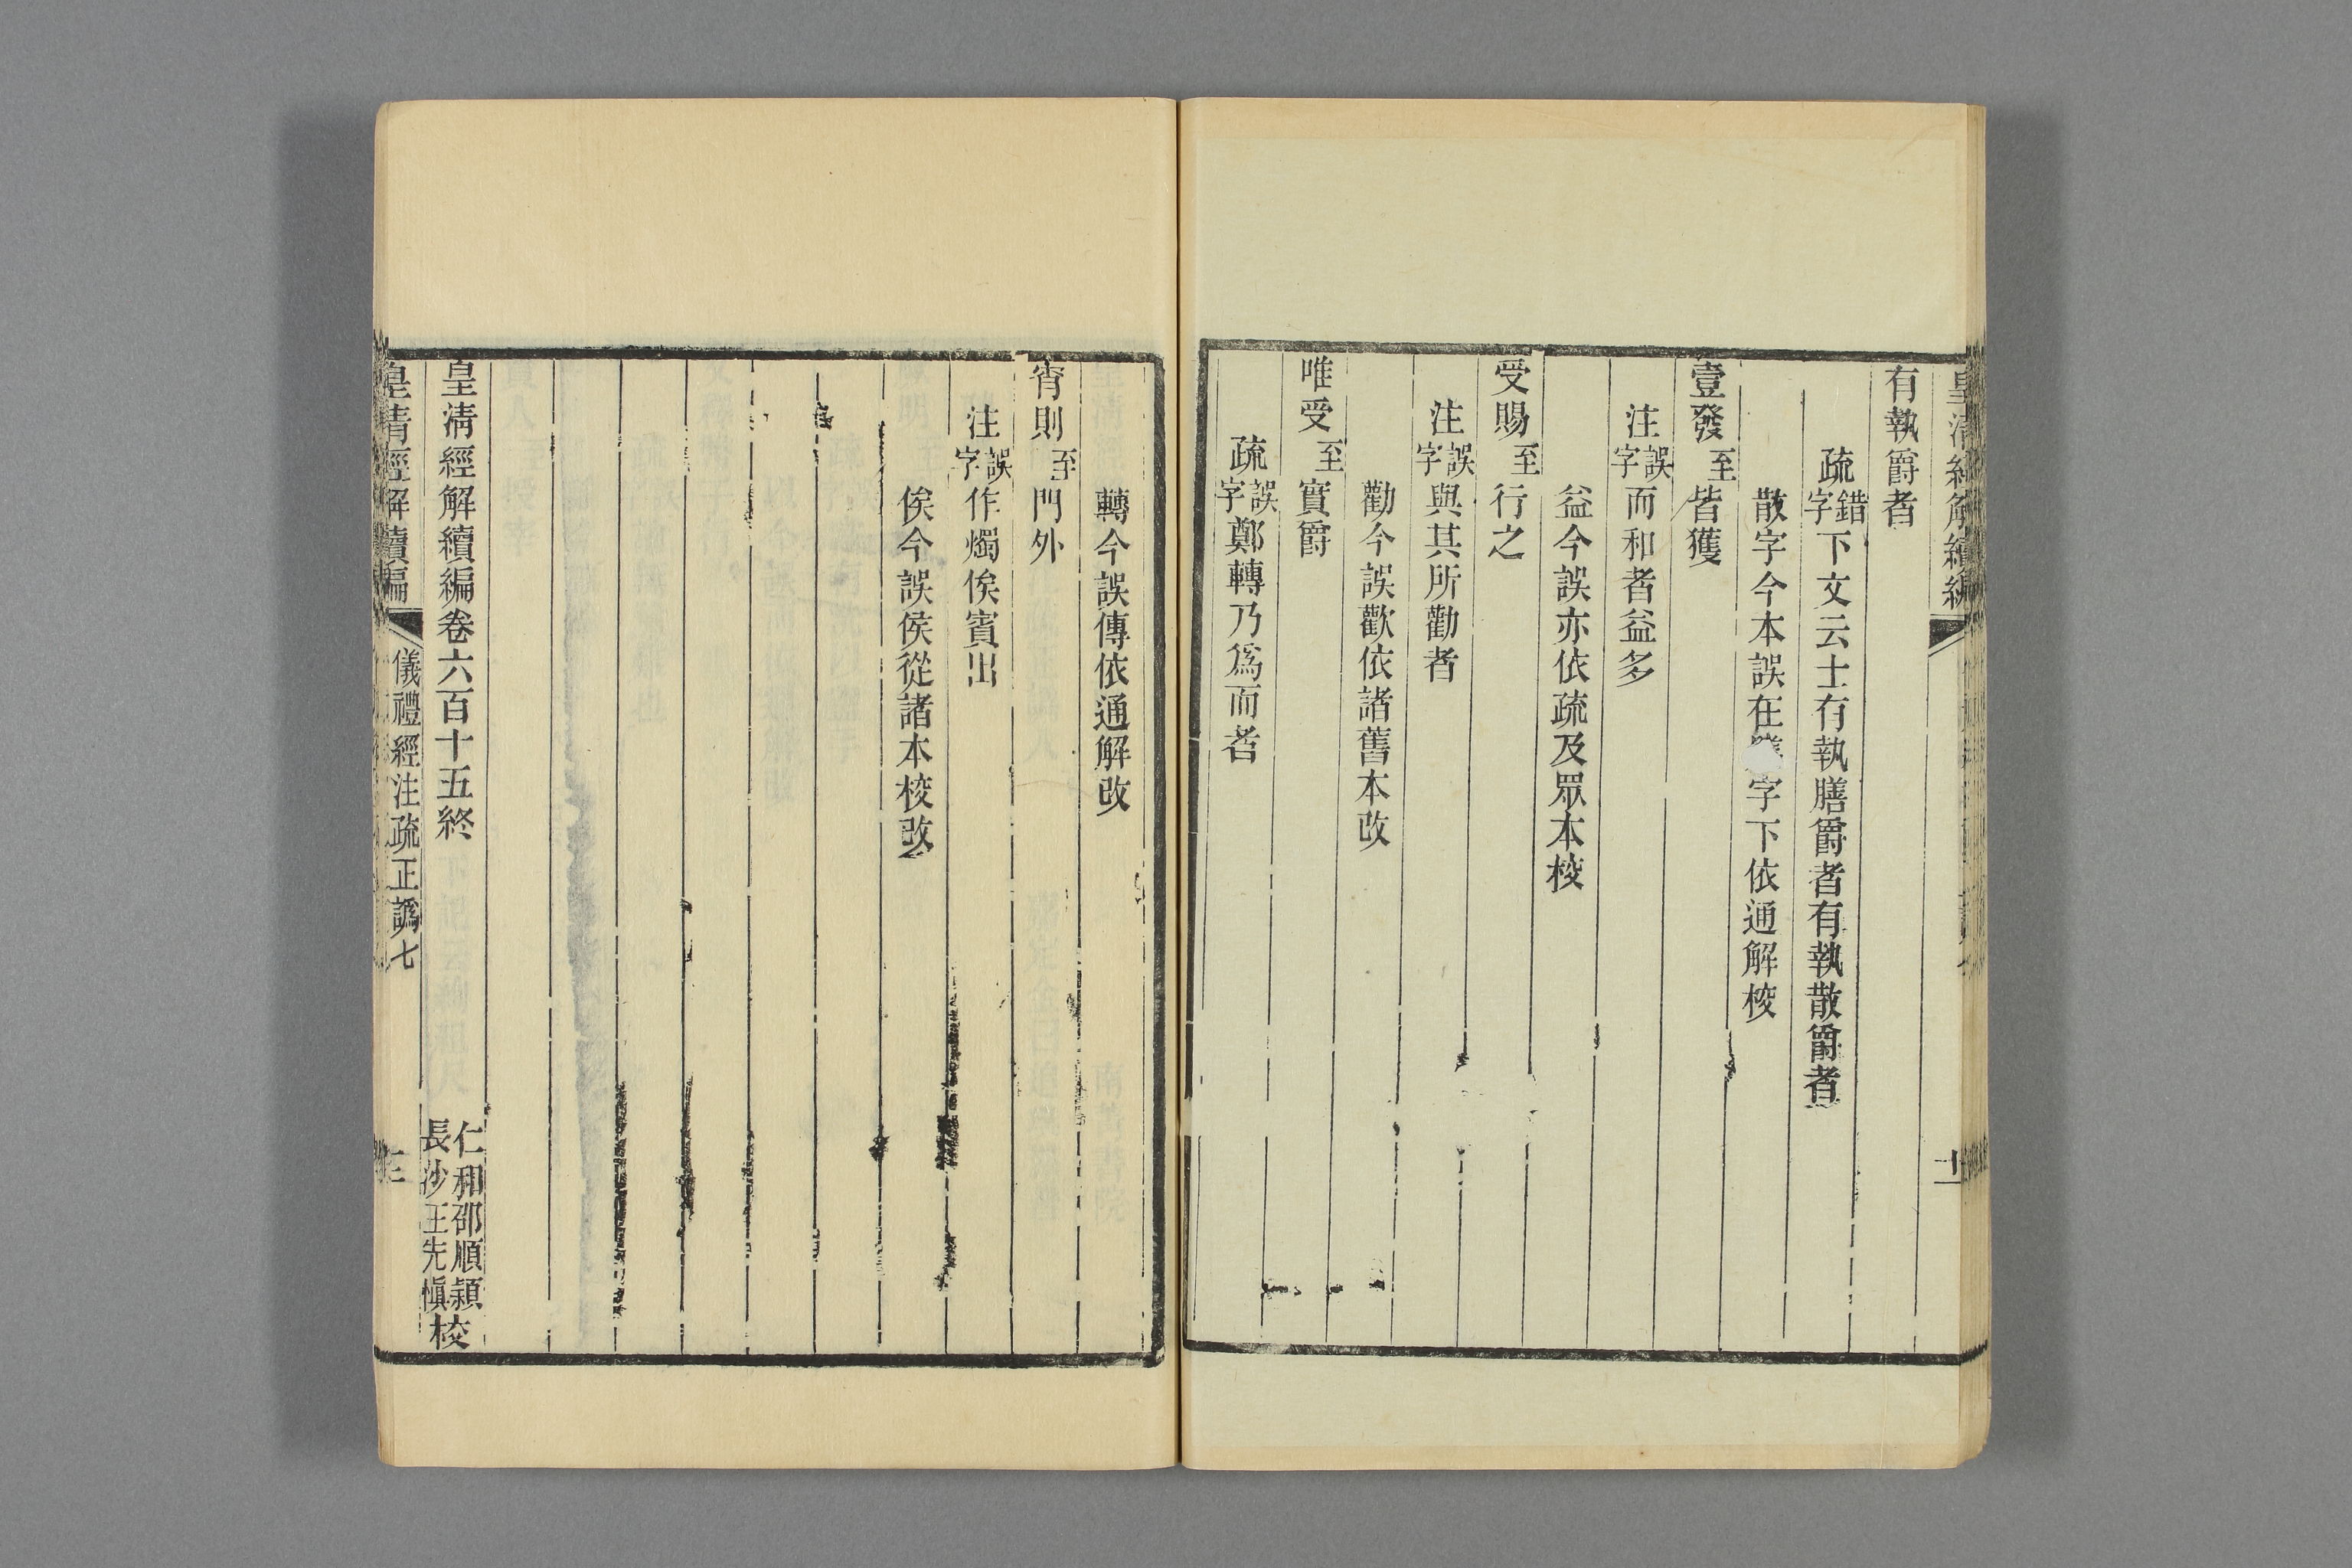 皇清經解續編
有執爵者
疏錯字下文云士有執膳爵者有執散爵者
散字今本誤在 字下依通解校
壹發至皆獲
注誤字而和者益多
益今誤亦依疏及眾本校
受賜至行之
注誤字與其所勸者
勸今誤歡依諸舊本改
唯受至實爵
疏誤字鄭轉乃爲而者
轉今誤傳依通解改
宵則至門外
注誤字作燭俟賓出
俟今誤侯從諸本校改
皇清經解續編卷六百十五終
仁和邵順潁
長沙王先慎校
皇清經解續編
儀禮經注疏正譌七